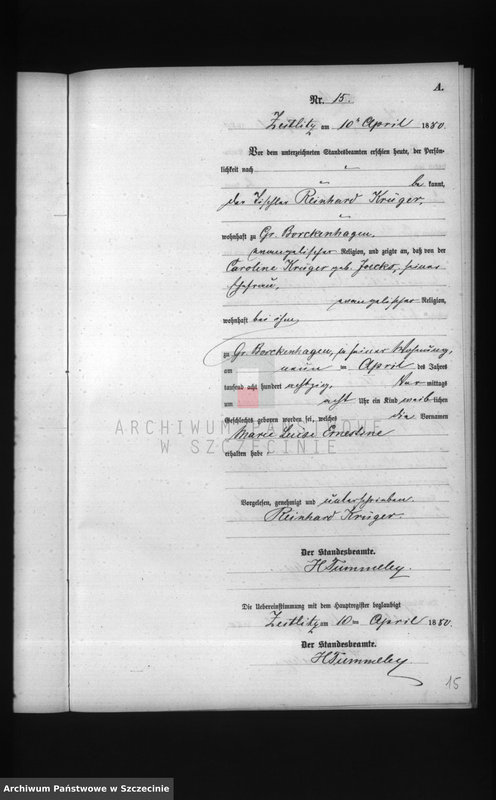 A.
Nr. 15.
Zeitlitz am 10ᵗ April 1880.
Vor dem unterzeichneten Standesbeamten erschien heute, der Persön-
lichkeit nach
be kannt,
der Tischler Reinhard Krüger,
wohnhaft zu Gr. Borckenhagen,
evangelischer Religion, und zeigte an, daß von der
Caroline Krüger geb. seiner
Ehefrau,
evangelischer Religion,
wohnhaft bei ihm,
zu Gr. Borckenhagen, in seiner Wohnung,
am neun ten April des Jahres
tausend acht hundert achtzig, Vor mittags
um acht Uhr ein Kind weiblichen
Geschlechts geboren worden sei, welches die Vornamen
Marie Luise Ernestine
erhalten habe
ARCHIWUM PAŃSTWOWE
W SZCZECINIE
Vorgelesen, genehmigt und unterschrieben
Reinhard Krüger.
Der Standesbeamte.
H Tummeley.
Die Uebereinstimmung mit dem Hauptregister beglaubigt
Zeitlitz am 10 ten April 1880.
Der Standesbeamte.
H Tummeley
15
Archiwum Państwowe w Szczecinie